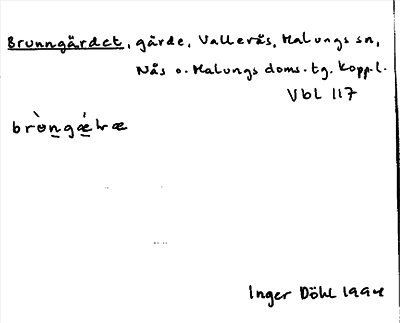 Brunngärdet, gärde, Vallerås, Malungs sn,
Nås o. Malungs doms. tg. Kopp. l.
Vbl 117
brò̲n̲gǽ̲ƚræ
Inger Döhl 1994